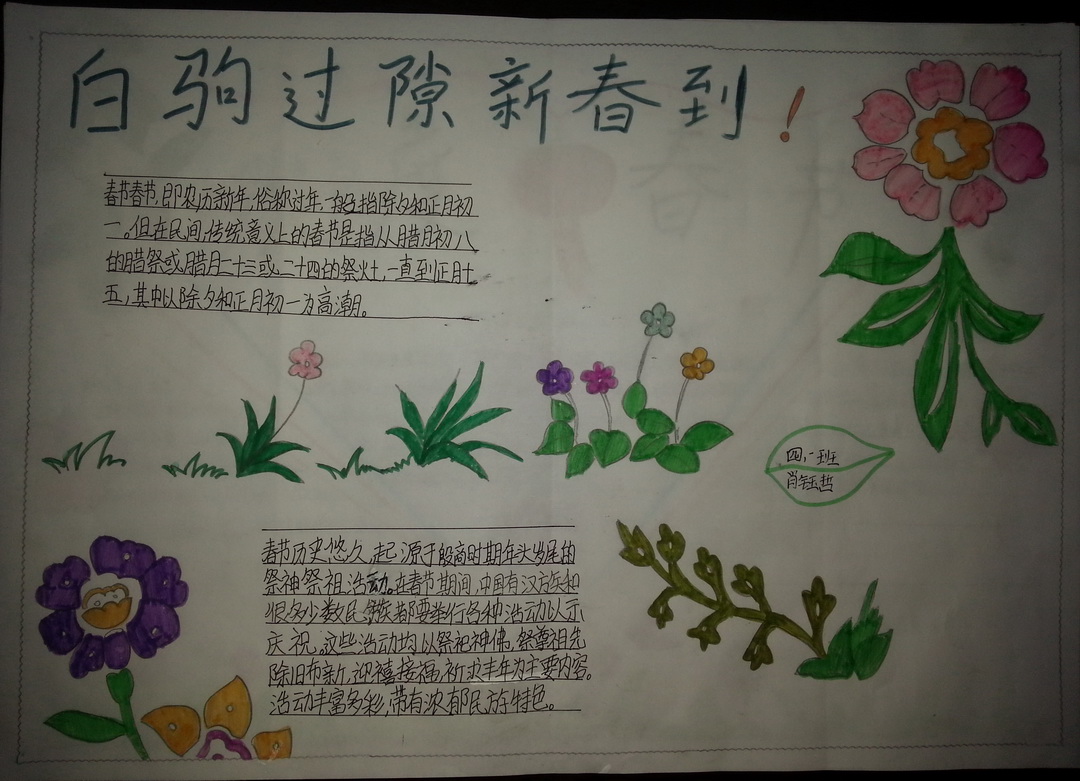 白驹过隙新春到！
春节春节,即农历新年,俗称过年,一般指除夕和正月初
一。但在民间,传统意义上的春节是指从腊月初八
的腊祭或腊月二十三或二十四的祭灶,一直到正月十
五,其中以除夕和正月初一为高潮。
四,一班
肖钰哲
春节历史悠久,起源于殷商时期年头岁尾的
祭神祭祖活动。在春节期间,中国有汉族和
很多少数民族都要举行各种活动以示
庆祝。这些活动均以祭祀神佛,祭尊祖先
除旧布新,迎禧接福,祈求丰年为主要内容。
活动丰富多彩,带有浓郁民族特色。